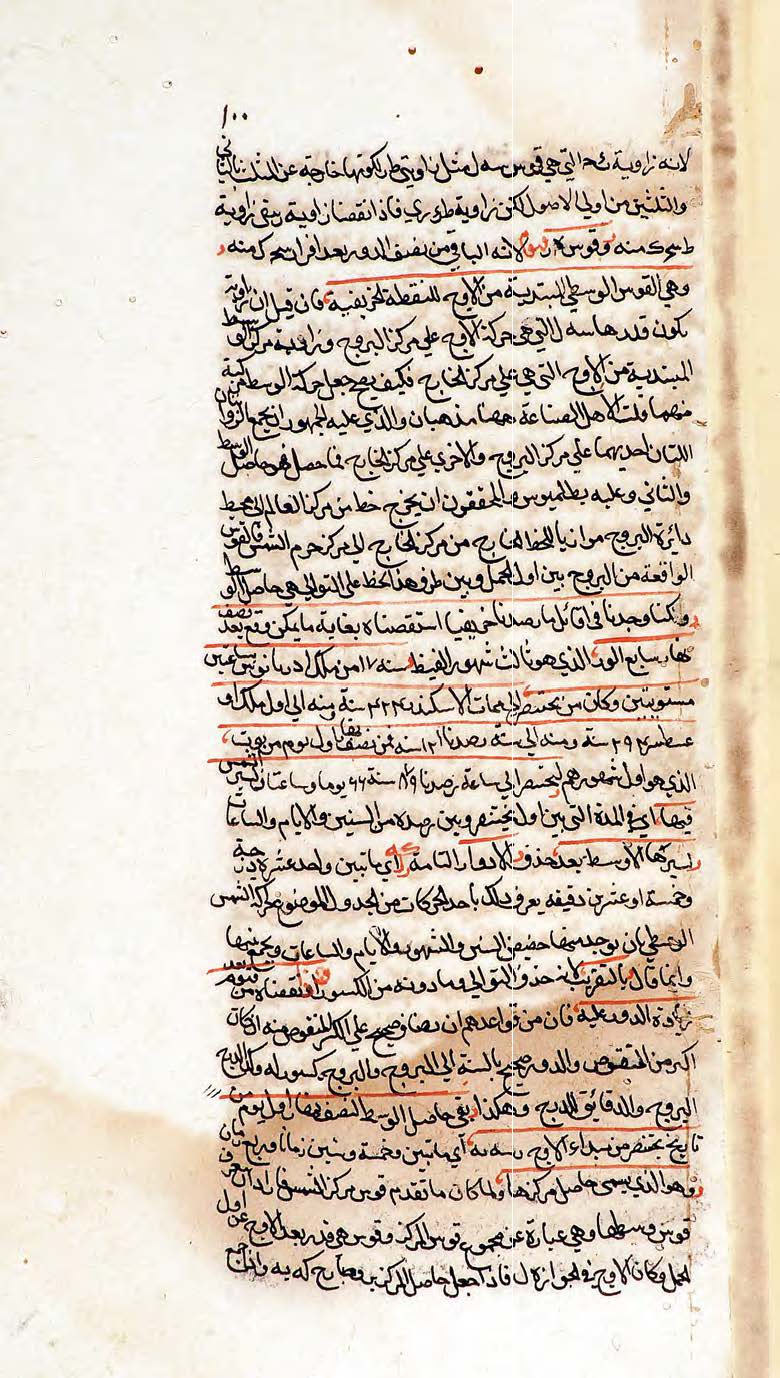 ١٠٠
لانه زاوية التي هي قوس مثل زاويتي لكونها خارجة عن المثلث بالثاني
والثلثين من اولي الاصول لكن زاوية فاذا نقصنا زاوية يبقي زاوية
منه وقوس لانه الباقي من نصف الدور بعد افراز منه
وهي القوس الوسطي المبتدية من الاوج للنقطة الخريفية فان قيل ان زاوية
يكون قدرها التي هي حركة الاوج علي مركز البروج وزاوية مركز الوسط
المبتدية من الاوج التي هي علي مركز الخارج فكيف يصح جعل حركة الوسط مركبة من
منهما قلت لاهل الصناعة ههنا مذهبان والذي عليه الجمهور ان يجمع الزوايتان
اللتان احديهما علي مركز البروج والاخري علي مركز الخارج فما حصل فهو حاصل الوسط
والثاني وعليه بطلميوس والمحققون ان يخرج خط من مركز العالم الي محيط
دايرة البروج موازيا للخط الخارج من مركز الخارج الي مركز جرم الشمس فالقوس
الواقعة من البروج بين اول الحمل وبين طرف هذا الخط علي التوالي هي حاصل الوسط
وكنا وجدنا في اقائل ما رصدنا خريفيا استقصناه بغاية ما يمكن وقع بعد نصف
نهار سابع الذي هو ثالث شهور القبط سنة ١٧ من ملك ادريانوس بساعتين
مستويتين وكان من بختنصر الي ممات الاسكندر ٤٢٤ سنة ومنه الي اول ملك او
غسطس ٢٩٤ سنة ومنه الي سنة رصدنا ١٦١ سنة فمن نصف نهار اول يوم من توت
الذي هو اول شهورهم لبختنصر الي ساعة رصدنا ٨٧٩ سنة ٦٦ يوما وساعتان تسير الشمس
فيها اي في المدة التي بين اول بختنصر وبين رصده من السنين والايام والساعات
بسيرها الاوسط بعد حذف الادوار التامة اي مايتين واحد عشرة درجة
وخمسة وعشرين دقيقه يعرف ذلك باخذ الحركات من الجدول الموضوع لحركة الشمس
الوسطي بان يوجد منها حصص السنين والشهور والايام والساعات ويجمع منها
وانما قال بالتقريب لانه حذف الثوالي وما دونه من الكسور فاذا نقصناه من بعد
زيادة الدور عليه فان من قواعدهم ان يضاف صحيح علي الكسر المنقوص منه ان كان
اكبر من المنقوص والدور صحيح بالنسبة الي البروج والبروج كسور له وكذا الدرج
البروج والدقايق للدرج وهكذا بقي حاصل الوسط لنصف نهار اول يوم من
تاريخ بختنصر من مبداء الاوج رسه يه اي مايتين وخمسة وستين زمانا وربع زمان
وهو الذي يسمي حاصل مركزها ولما كان ما تقدم قوس مركز الشمس فاراد ان يعرف
قوس وسطها وهي عبارة عن مجموع قوس المركز وقوس هي قدر بعد الاوج عن اول
الحمل وكان الاوج في الجوزا فاذا جعل حاصل المركز